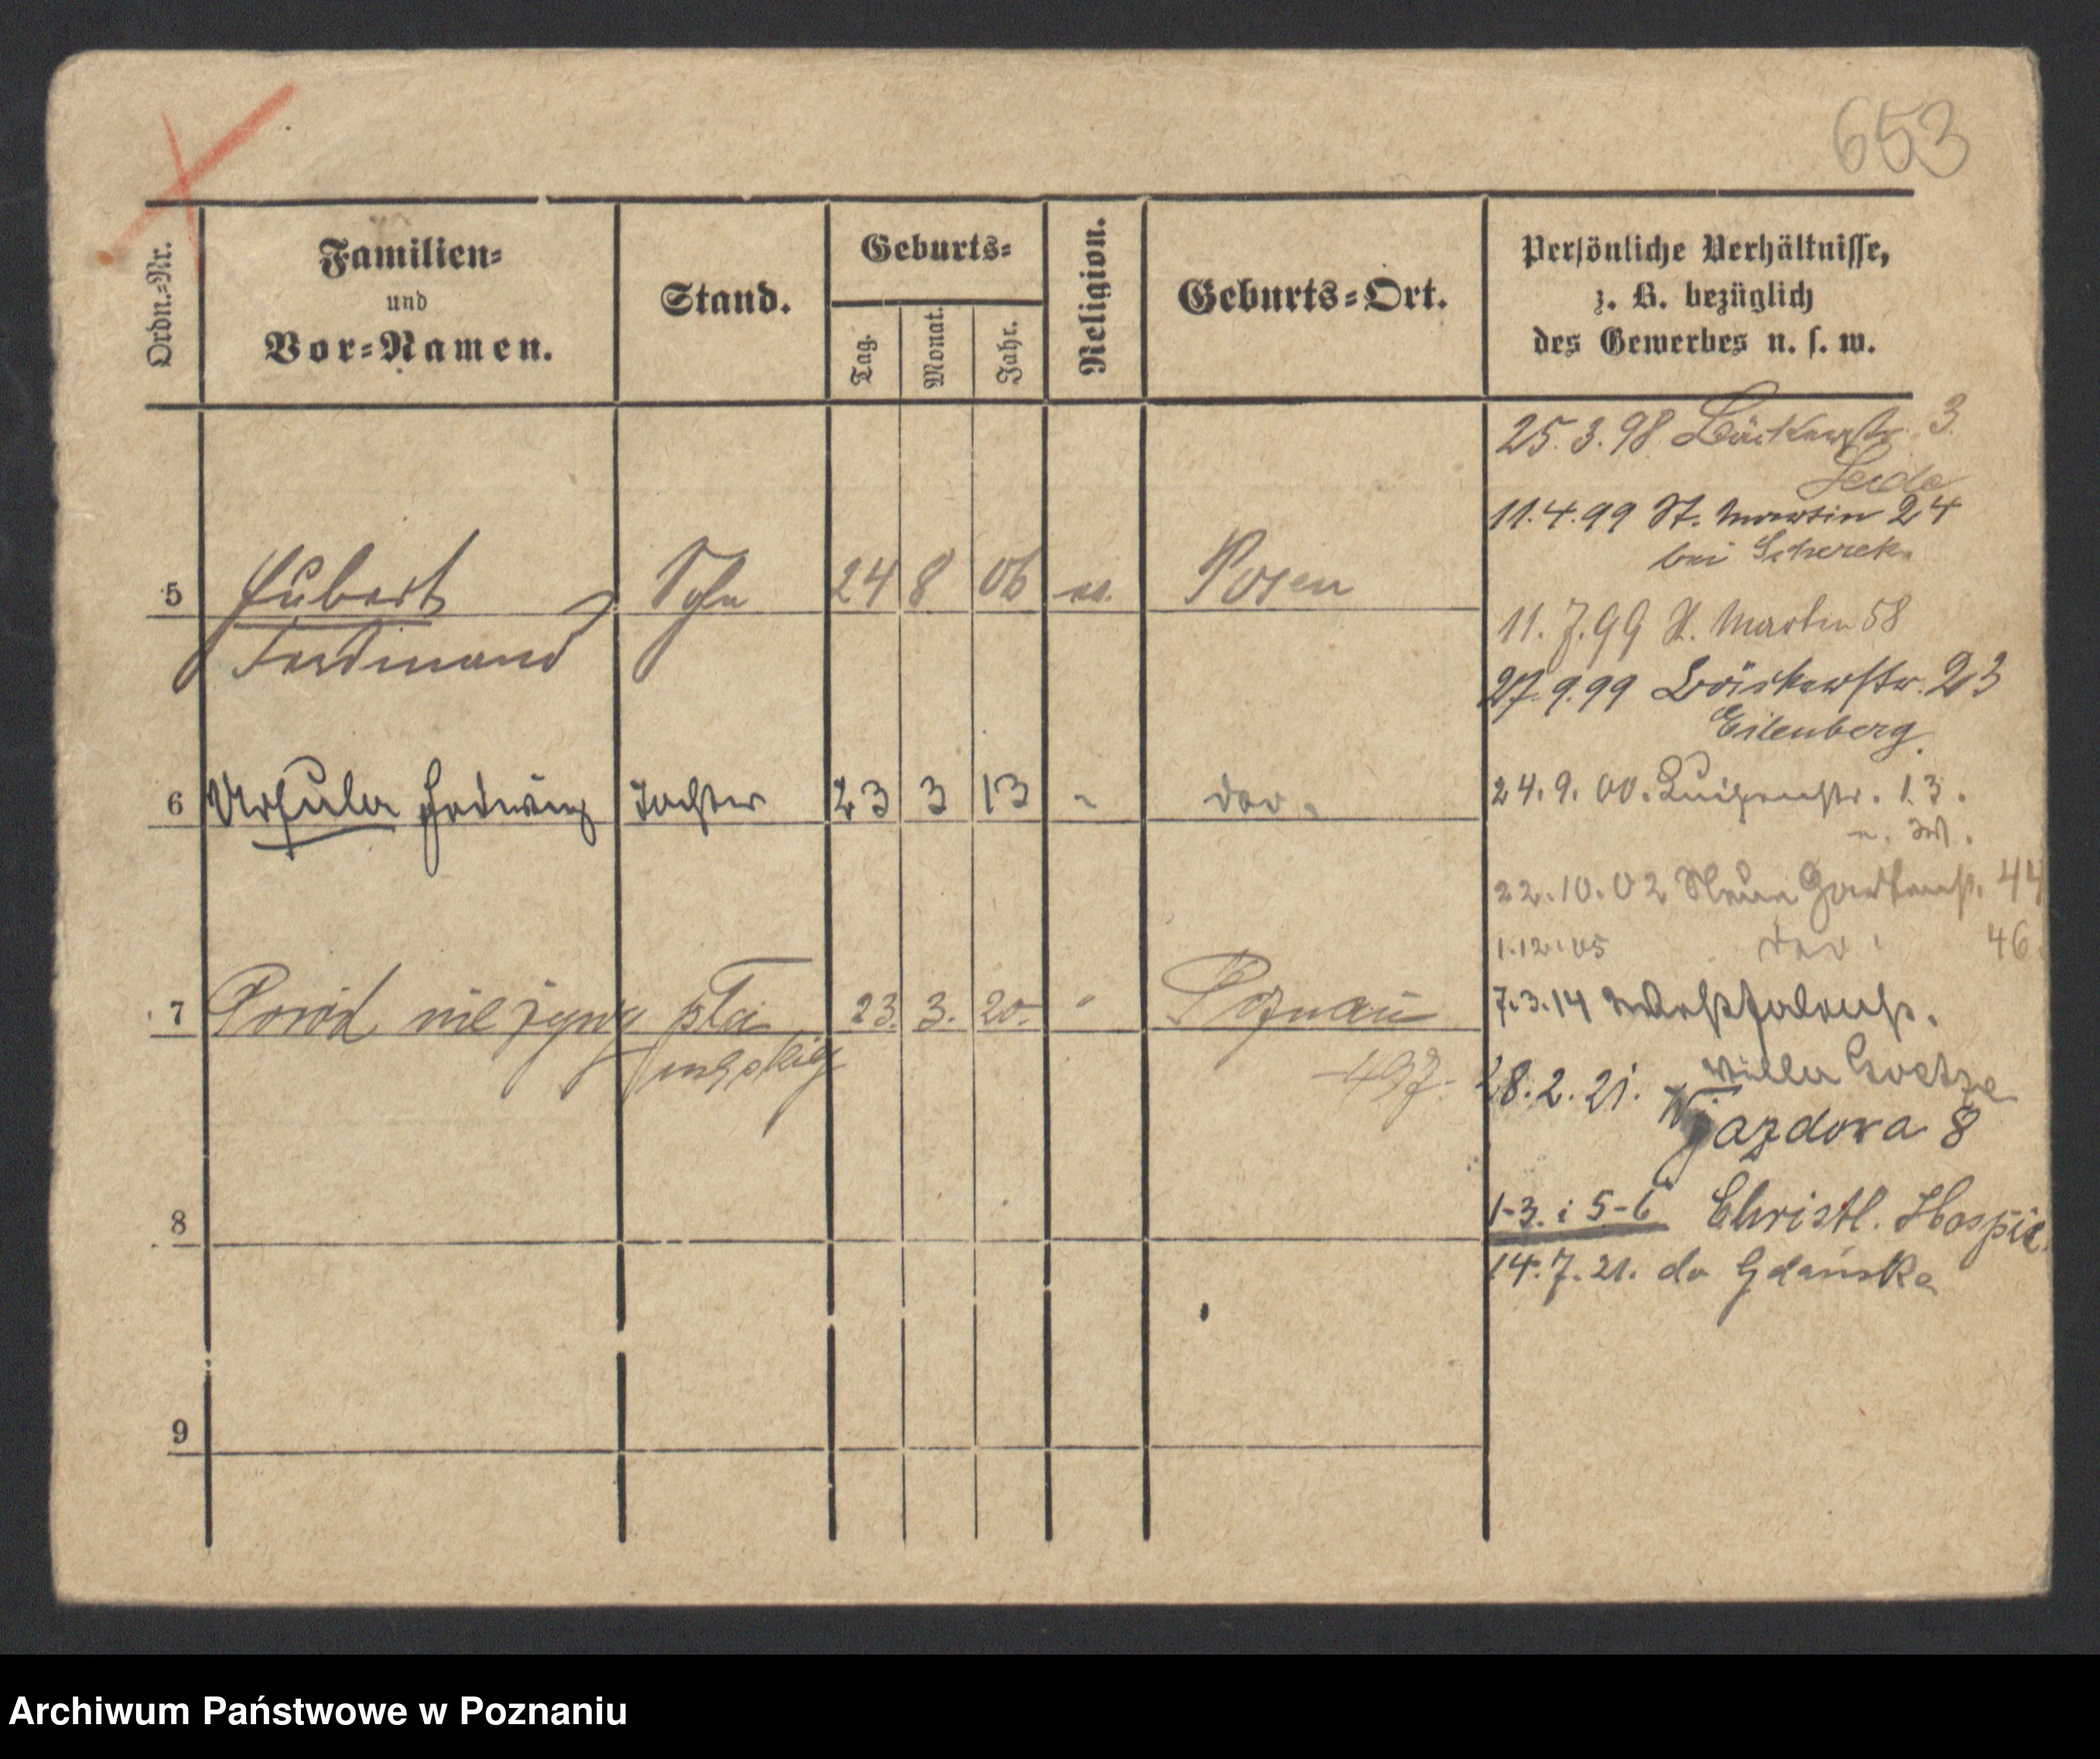 653
Ordn.-Nr.
Familien-
und
Vor-Namen.
Stand.
Geburts-
Tag.
Monat.
Jahr.
Religion.
Geburts-Ort.
Persönliche Verhältnisse,
z. B. bezüglich
des Gewerbes u. s. w.
25.3.98 Bäckerstr. 3.
11.4.99 St. Martin 24
bei Scherek
5 Hubert Sohn 24 8 06 Posen
Ferdinand
11.7.99 St. Martin 58
27.9.99 Bäckerstr. 23
Eilenberg.
6 Ursula Hedwig Tochter 23 3 13 " do.
24.9.00. Luisenstr. 13.
22.10.02 Neue Gartenstr. 44
1.12.05 do. 46.
7 Poród nieżywy płci 23. 3. 20. " Poznań
męskiej
-497-
7.3.14 Westfalenstr.
Villa Goetze
28.2.21. Wjazdowa 8
8
1-3. i 5-6 Christl. Hospiz.
14.7.21. do Gdańska
9
Archiwum Państwowe w Poznaniu